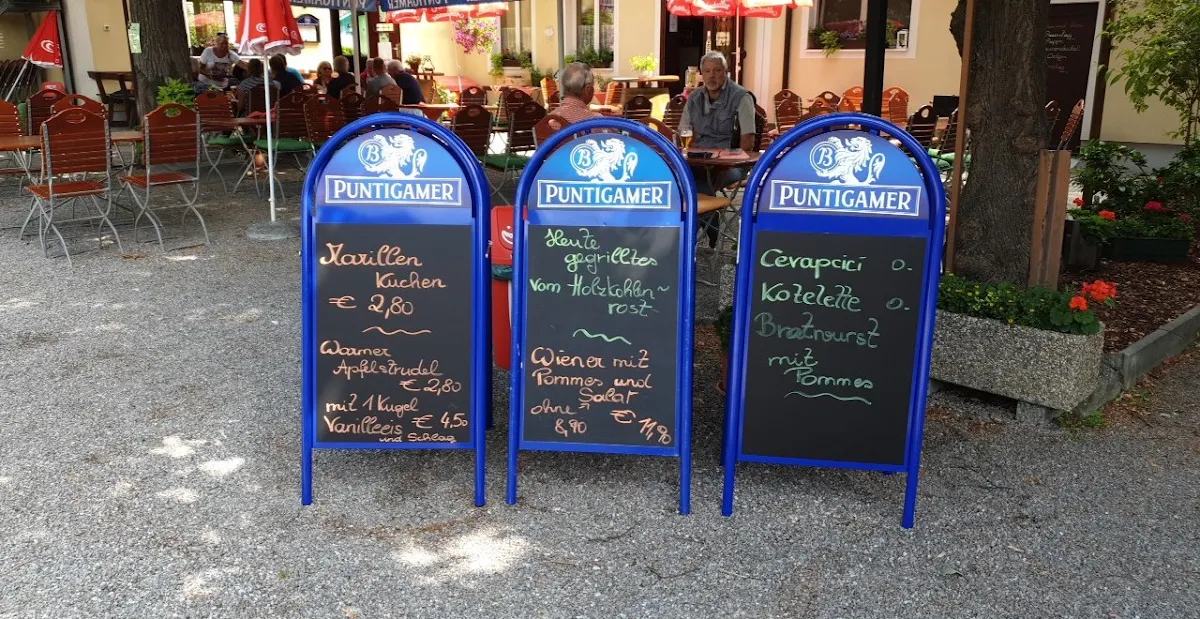 B
PUNTIGAMER
Marillen
Kuchen
€ 2,80
Warmer
Apfelstrudel
€ 2,80
mit 1 Kugel
Vanilleeis € 4,50
und Schlag
B
PUNTIGAMER
Heute
gegrilltes
vom Holzkohlen~
rost
Wiener mit
Pommes und
Salat
ohne € 11,90
8,90
B
PUNTIGAMER
Cevapcici 0.
Kotelette 0.
Bratwurst
mit
Pommes